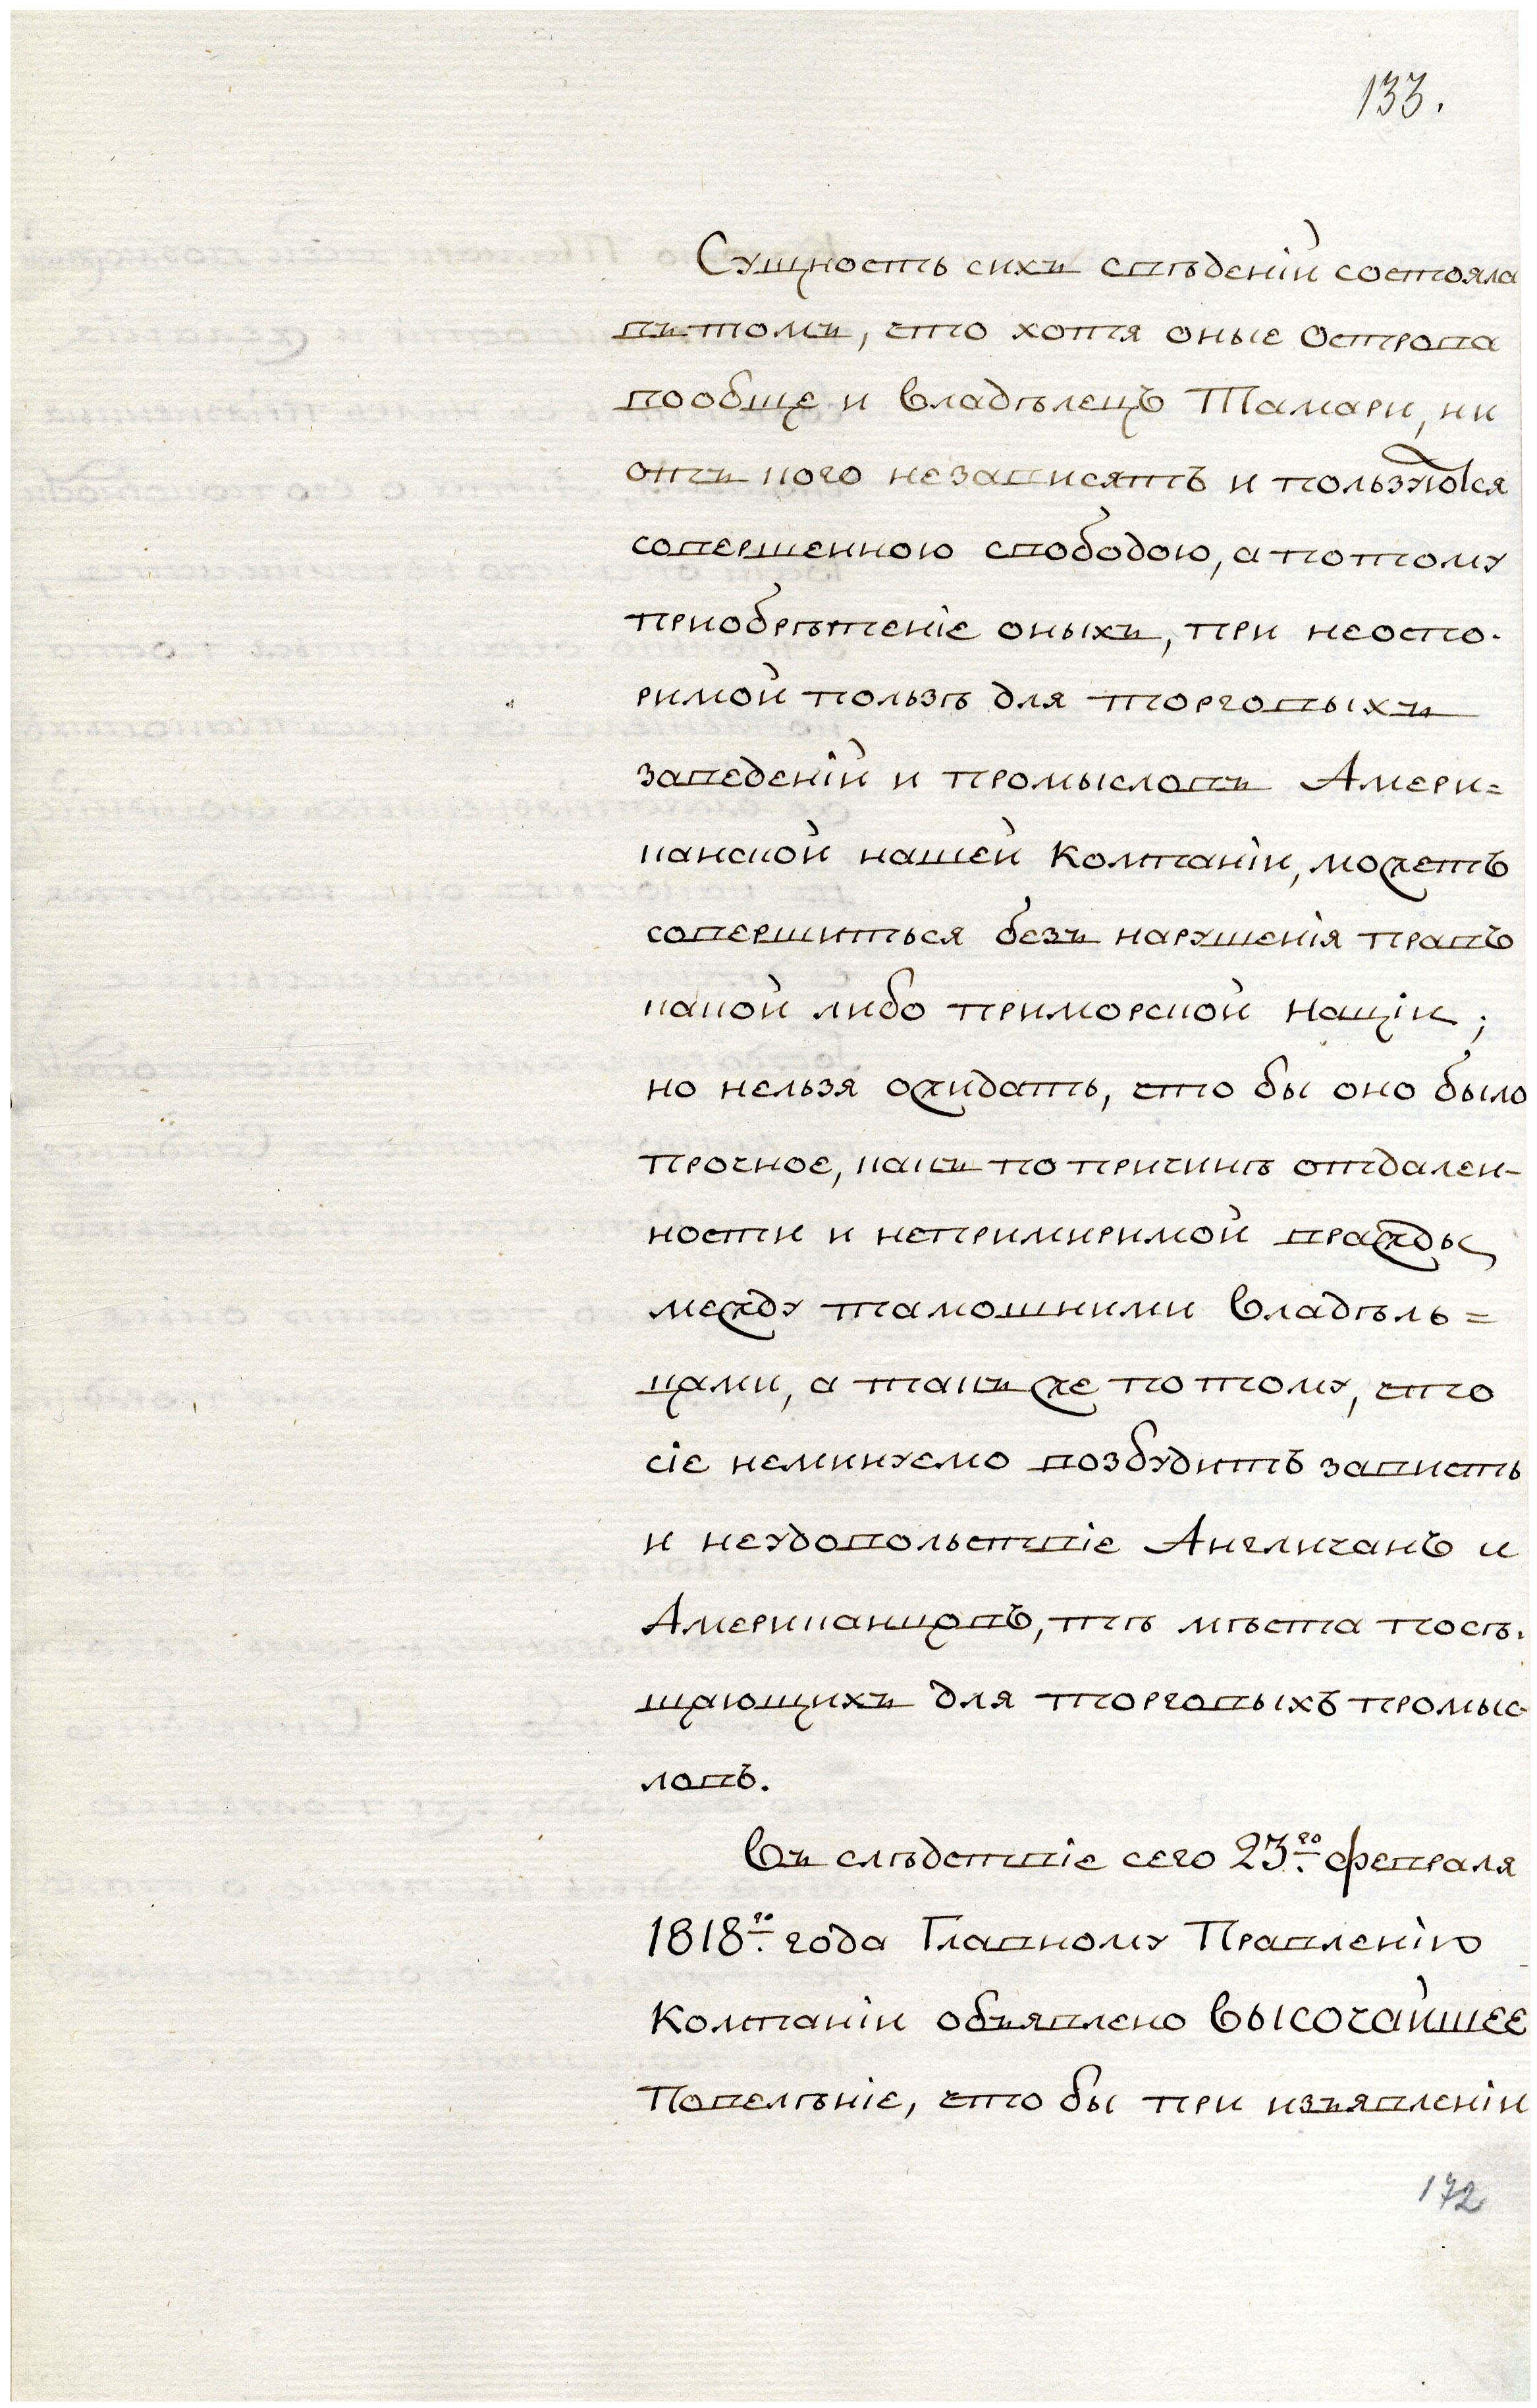 133.
Сущность сихъ свѣденій состояла
въ томъ, что хотя оные Острова
вообще и Владѣлецъ Тамари, ни
отъ кого независятъ и пользуются
совершенною свободою, а потому
приобрѣтеніе оныхъ, при неоспо-
римой пользѣ для торговыхъ
заведеній и промысловъ Амери=
канской нашей Компаніи, можетъ
совершиться безъ нарушенія правъ
какой либо приморской Націи;
но нельзя ожидать, что бы оно было
прочное, какъ по причинѣ отдален-
ности и непримиримой вражды
между тамошними Владѣль=
цами, а такъ же по тому, что
сіе неминуемо возбудитъ зависть
и неудовольствіе Англичанъ и
Американцовъ, тѣ мѣста посѣ-
щающихъ для торговыхъ промыс-
ловъ.
Въ слѣдствіе сего 23го февраля
1818го года Главному Правленію
Компаніи объявлено ВЫСОЧАЙШЕЕ
Повелѣніе, что бы при изъявленіи
172